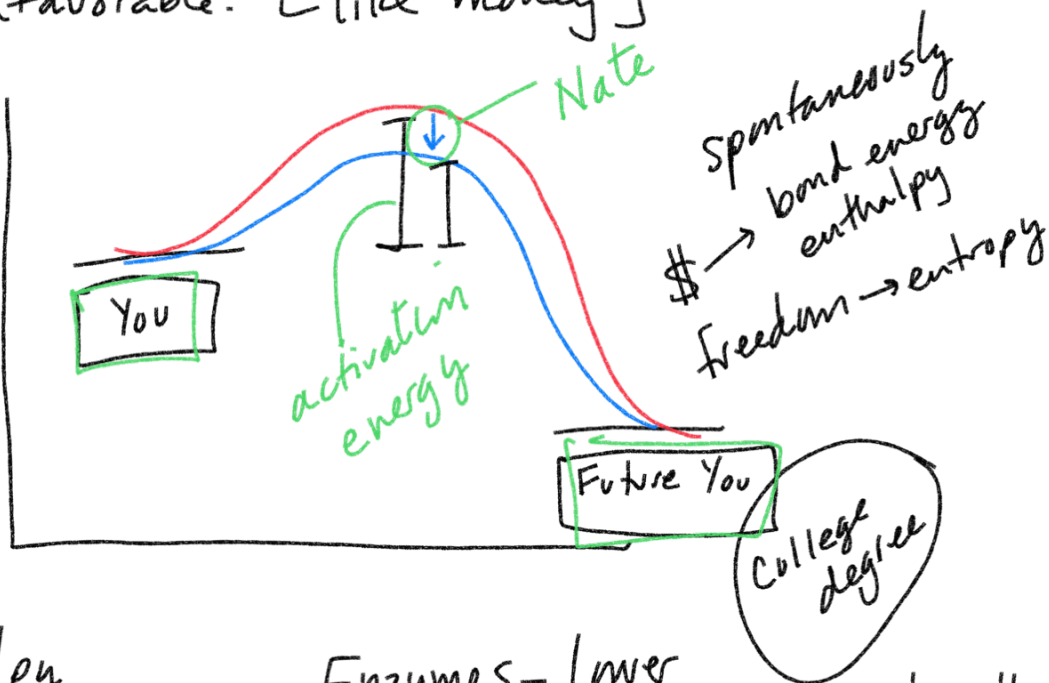 favorable. [like money]
Nate
spontaneously
bond energy
enthalpy
$ →
freedom → entropy
You
activation
energy
Future You
College
degree
Enzymes - lower